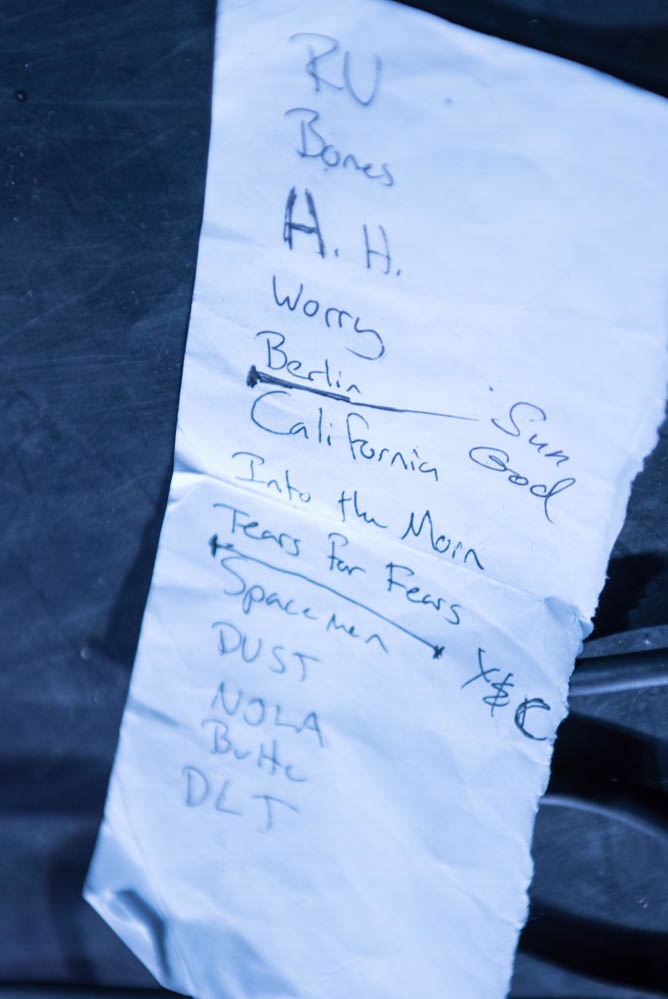 RU
Bones
H. H.
Worry
Berlin
Sun God
California
Into the Morn
Tears for Fears
Spacemen
Y $ C
DUST
NOLA
Butte
DLJ